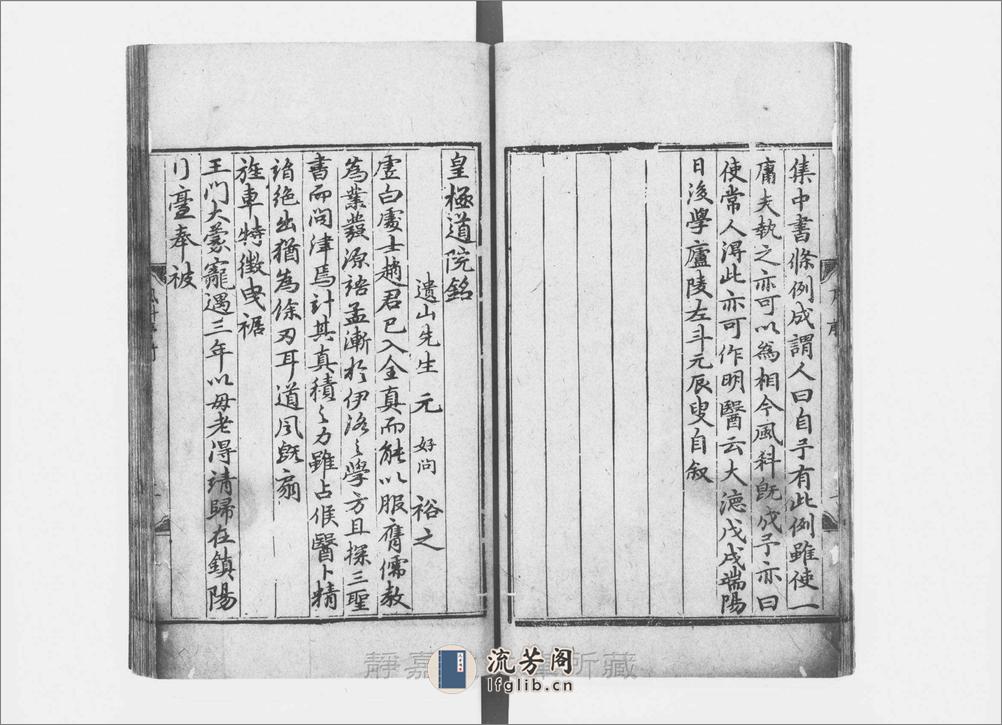 集中書條例成謂人曰自予有此例雖使一
庸夫執之亦可以為相今風科既成予亦曰
使常人得此亦可作明醫云大德戊戌端陽
日後學廬陵左斗元辰叟自叙
皇極道院銘
遺山先生元好問裕之
虛白處士趙君已入全真而能以服膺儒教
為業發源語孟漸於伊洛之學方且探三聖
書而問津焉計其真積之力雖占候醫卜精
詣絕出猶為餘刃耳道風既扇
旌車特徵曳裾
王門大蒙寵遇三年以母老得請歸在鎮陽
行臺奉被
靜嘉 所藏
流芳阁
lfglib.cn